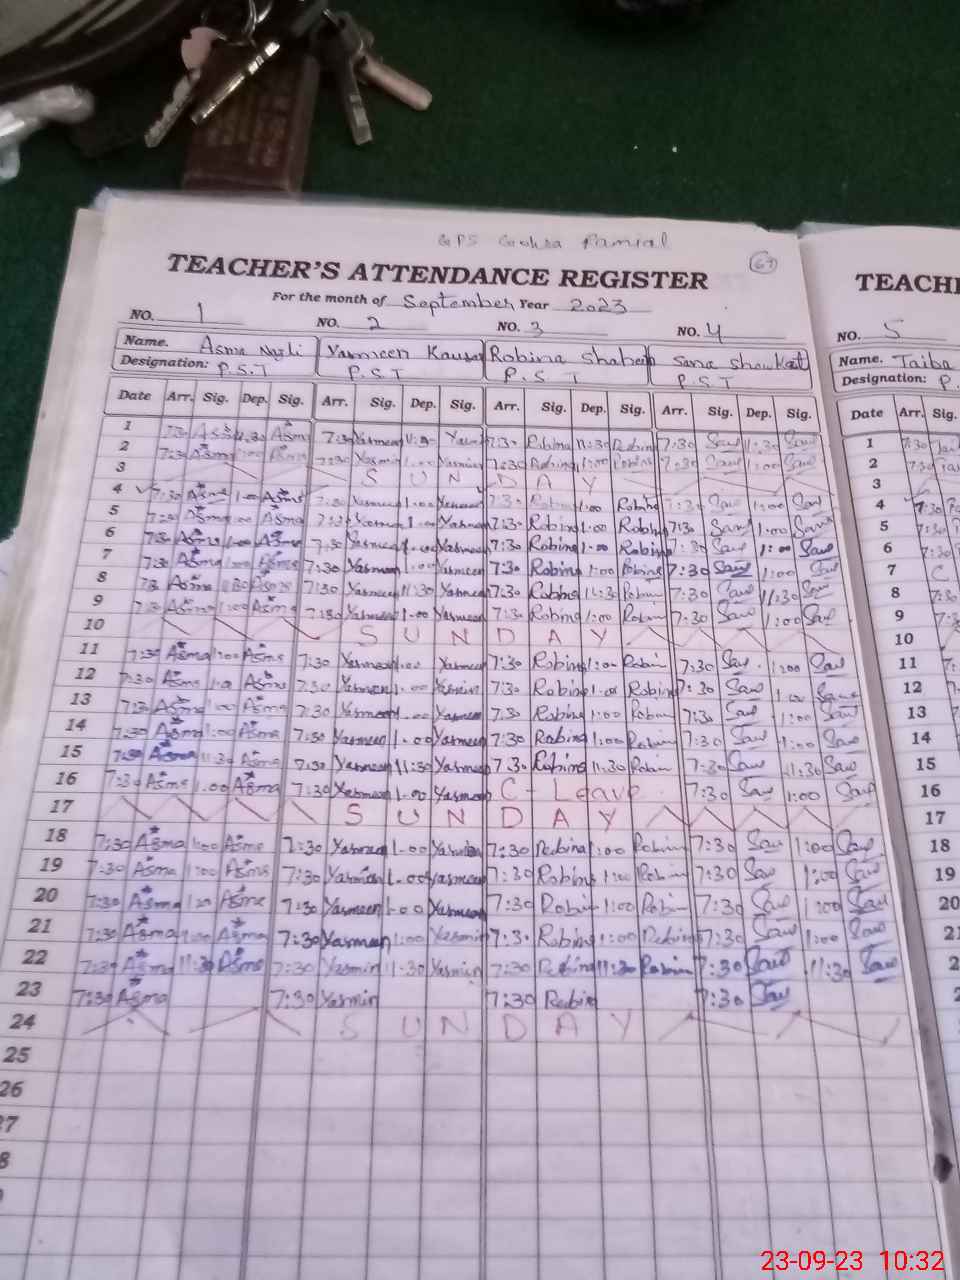 GPS Gohra Ramial
TEACHER'S ATTENDANCE REGISTER
67
TEACHE
For the month of September Year 2023
NO. 1 NO. 2 NO. 3 NO. 4 NO. 5
Name. Asma Nazli Yasmeen Kausar Robina Shaheen Sana Showkat Name. Taiba
Designation: P.S.T P.S.T P.S.T P.S.T Designation: P.
Date Arr. Sig. Dep. Sig. Arr. Sig. Dep. Sig. Arr. Sig. Dep. Sig. Arr. Sig. Dep. Sig. Date Arr. Sig.
1 7:30 Asma 11:30 Asma 7:30 Yasmeen 11:30 7:30 Robina 11:30 Robina 7:30 11:30 1 7:30
2 7:30 Asma 1:00 Asma 7:30 Yasmin 1:00 Yasmin 7:30 Robina 1:00 Robina 7:30 1:00 2 7:30
3 SUNDAY 3
4 7:30 Asma 1:00 Asma 7:30 Yasmeen 1:00 Yasmeen 7:30 Robina 1:00 Robina 7:30 1:00 4 7:30
5 7:30 Asma 1:00 Asma 7:30 Yasmeen 1:00 Yasmeen 7:30 Robina 1:00 Robina 7:30 1:00 5 7:30
6 7:30 Asma 1:00 Asma 7:30 Yasmeen 1:00 Yasmeen 7:30 Robina 1:00 Robina 7:30 1:00 6 7:30
7 7:30 Asma 1:00 Asma 7:30 Yasmeen 1:00 Yasmeen 7:30 Robina 1:00 Robina 7:30 1:00 7 C
8 7:30 Asma 11:30 Asma 7:30 Yasmeen 11:30 Yasmeen 7:30 Robina 11:30 Robina 7:30 11:30 8 7:30
9 7:30 Asma 1:00 Asma 7:30 Yasmeen 1:00 Yasmeen 7:30 Robina 1:00 Robina 7:30 1:00 9 7:3
10 SUNDAY 10
11 7:30 Asma 1:00 Asma 7:30 Yasmeen 1:00 Yasmeen 7:30 Robina 1:00 Robina 7:30 1:00 11 7:
12 7:30 Asma 1:00 Asma 7:30 Yasmeen 1:00 Yasmin 7:30 Robina 1:00 Robina 7:30 1:00 12
13 7:30 Asma 1:00 Asma 7:30 Yasmeen 1:00 Yasmeen 7:30 Robina 1:00 Robina 7:30 1:00 13
14 7:30 Asma 1:00 Asma 7:30 Yasmeen 1:00 Yasmeen 7:30 Robina 1:00 Robina 7:30 1:00 14
15 7:30 Asma 11:30 Asma 7:30 Yasmeen 11:30 Yasmeen 7:30 Robina 11:30 Robina 7:30 11:30 15
16 7:30 Asma 1:00 Asma 7:30 Yasmeen 1:00 Yasmeen C-Leave 7:30 1:00 16
17 SUNDAY 17
18 7:30 Asma 1:00 Asma 7:30 Yasmeen 1:00 Yasmin 7:30 Robina 1:00 Robina 7:30 1:00 18
19 7:30 Asma 1:00 Asma 7:30 Yasmeen 1:00 Yasmeen 7:30 Robina 1:00 Robina 7:30 1:00 19
20 7:30 Asma 1:00 Asma 7:30 Yasmeen 1:00 Yasmeen 7:30 Robin 1:00 Robina 7:30 1:00 20
21 7:30 Asma 1:00 Asma 7:30 Yasmeen 1:00 Yasmin 7:30 Robina 1:00 Robina 7:30 1:00 21
22 7:30 Asma 11:30 Asma 7:30 Yasmin 11:30 Yasmin 7:30 Robina 11:30 Robina 7:30 11:30 2
23 7:30 Asma 7:30 Yasmin 7:30 Robin 7:30
24 SUNDAY
25
26
7
8
23-09-23 10:32